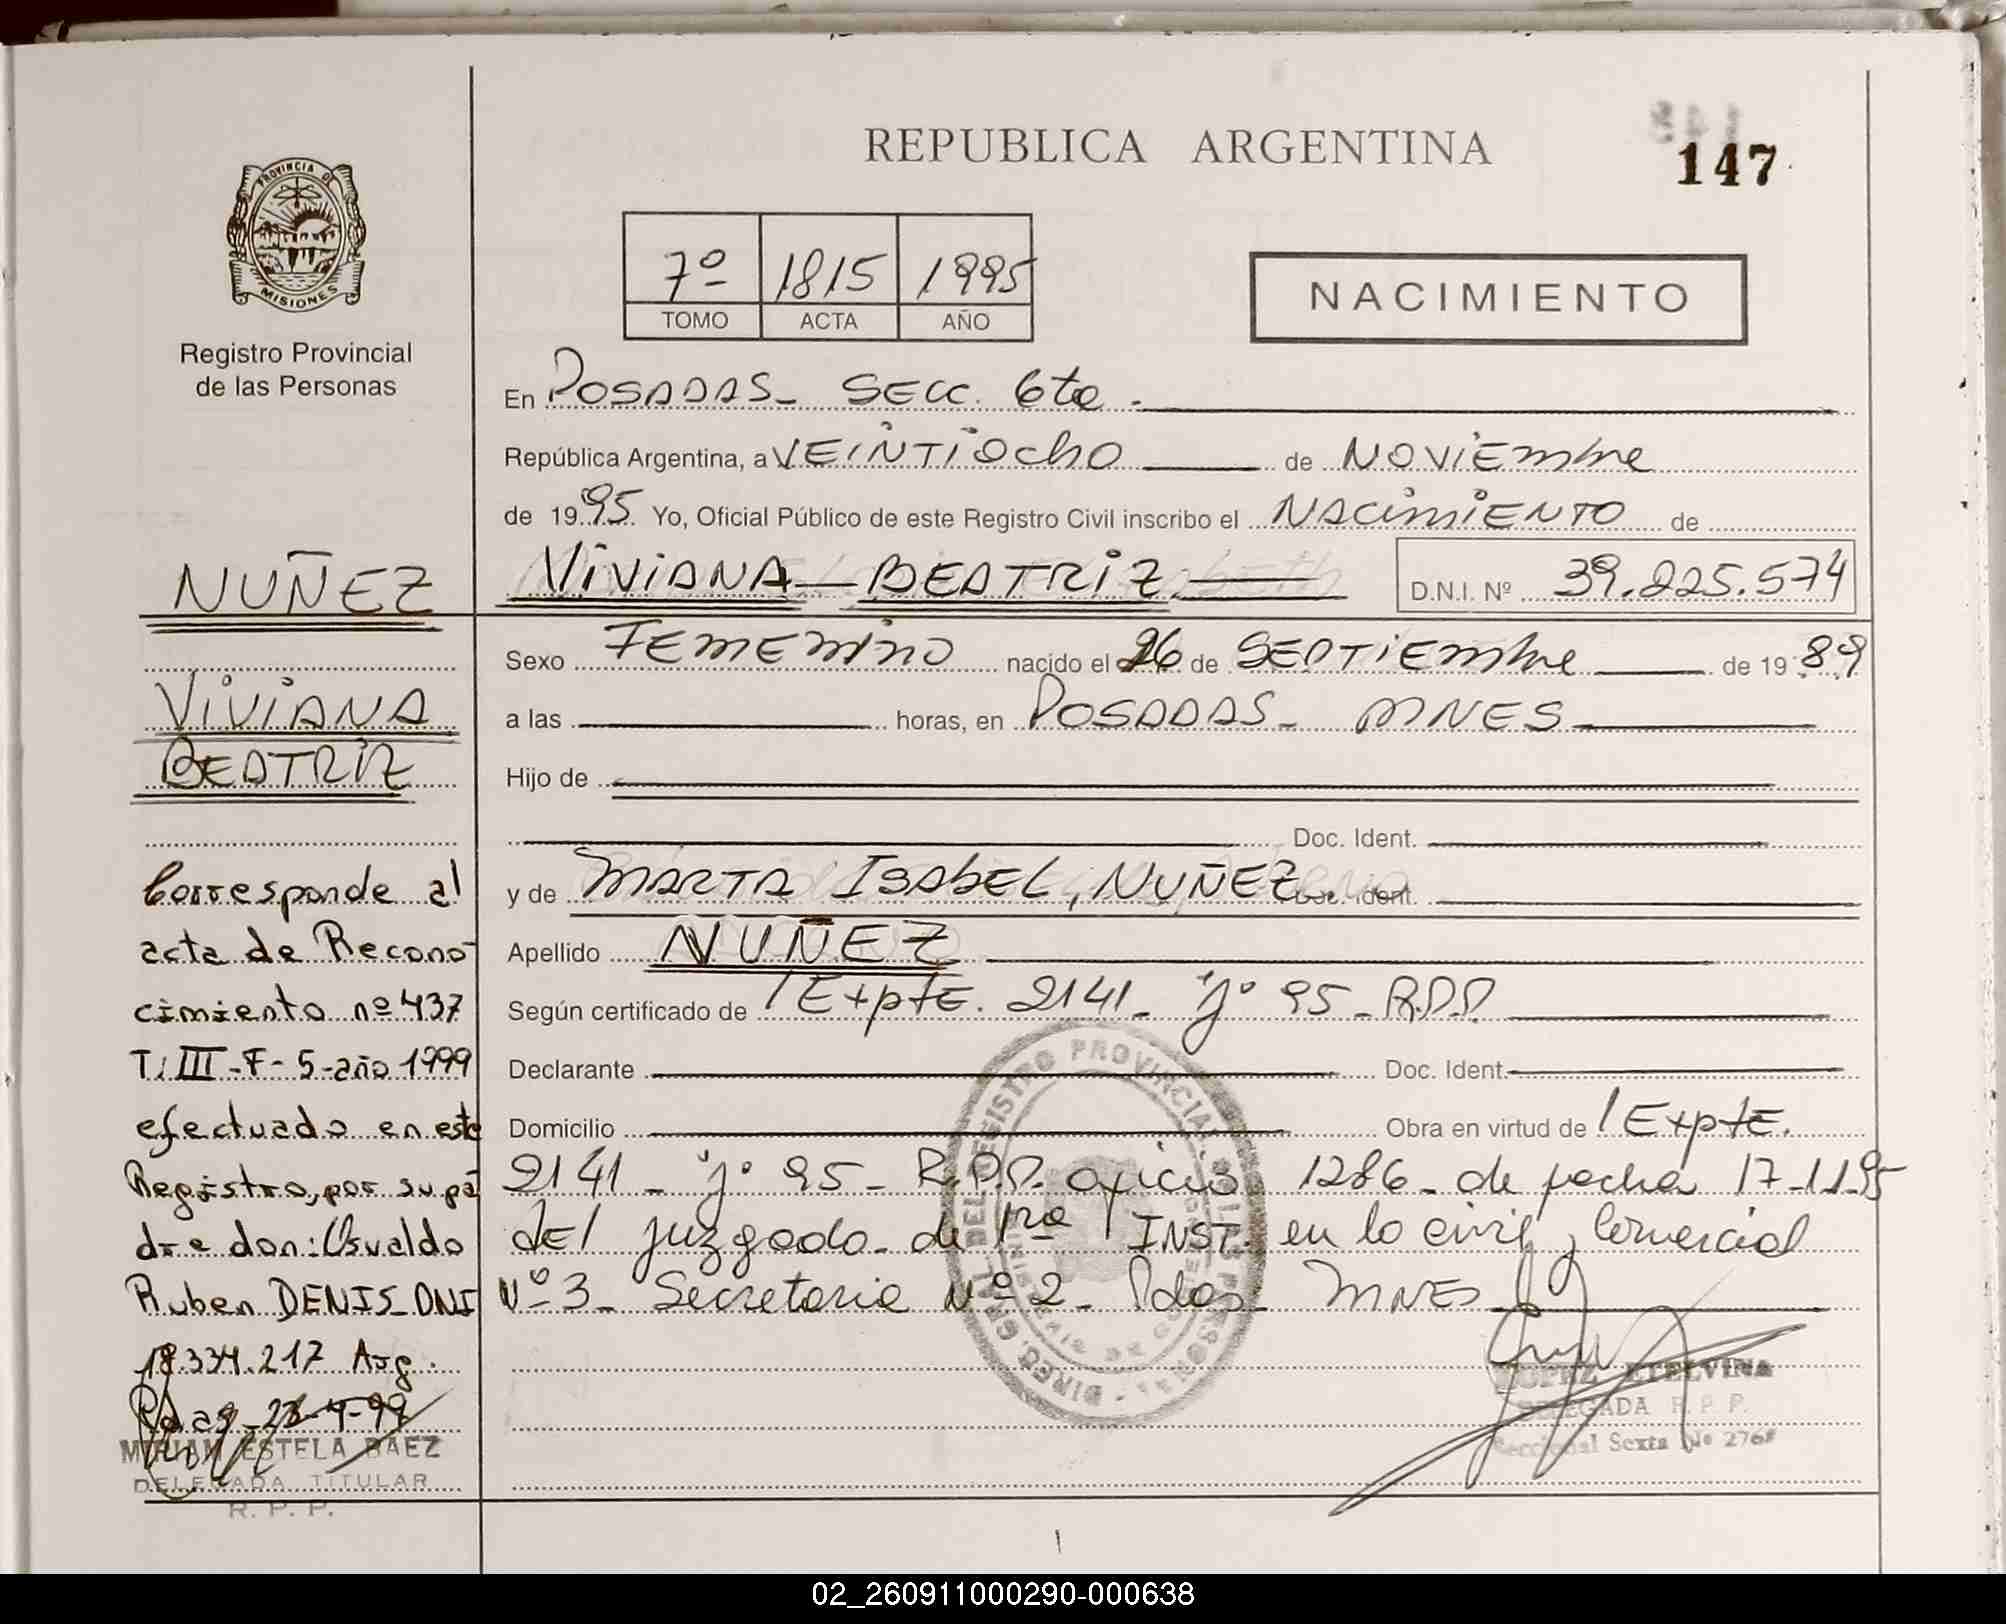 REPUBLICA ARGENTINA
147
PROVINCIA DE
MISIONES
Registro Provincial
de las Personas
7º 1815 1995
TOMO ACTA AÑO
NACIMIENTO
En POSADAS - SECC. 6ta.
República Argentina, a VEINTIOCHO de NOVIEMBRE
de 1995 Yo, Oficial Público de este Registro Civil inscribo el NACIMIENTO de
VIVIANA BEATRIZ D.N.I. Nº 39.225.574
Sexo FEMENINO nacido el 26 de SEPTIEMBRE de 1989
a las horas, en POSADAS - MNES
Hijo de
Doc. Ident.
y de MARTA ISABEL, NUÑEZ Doc. Ident.
Apellido NUÑEZ
Según certificado de / Expte. 2141 - "J" 95 - R.P.P
Declarante Doc. Ident.
Domicilio Obra en virtud de / Expte.
2141 - "J" 95 - R.P.P. oficio 1286 - de fecha 17-11-95
del juzgado de 1ra INST. en lo civil y Comercial
Nº 3 - Secretaria Nº 2 - Pdas - MNES
LOPEZ ETELVINA
DELEGADA R. P. P.
Seccional Sexta Nº 2768
NUÑEZ
VIVIANA
BEATRIZ
Corresponde al
acta de Recono-
cimiento nº 437
T: III - F - 5 - año 1999
efectuado en este
Registro, por su pa
dre don: Osvaldo
Ruben DENIS - DNI
18.334.217 Arg.
Pdas - 23-4-99
MIRIAM ESTELA BAEZ
DELEGADA TITULAR
R. P. P.
02_260911000290-000638